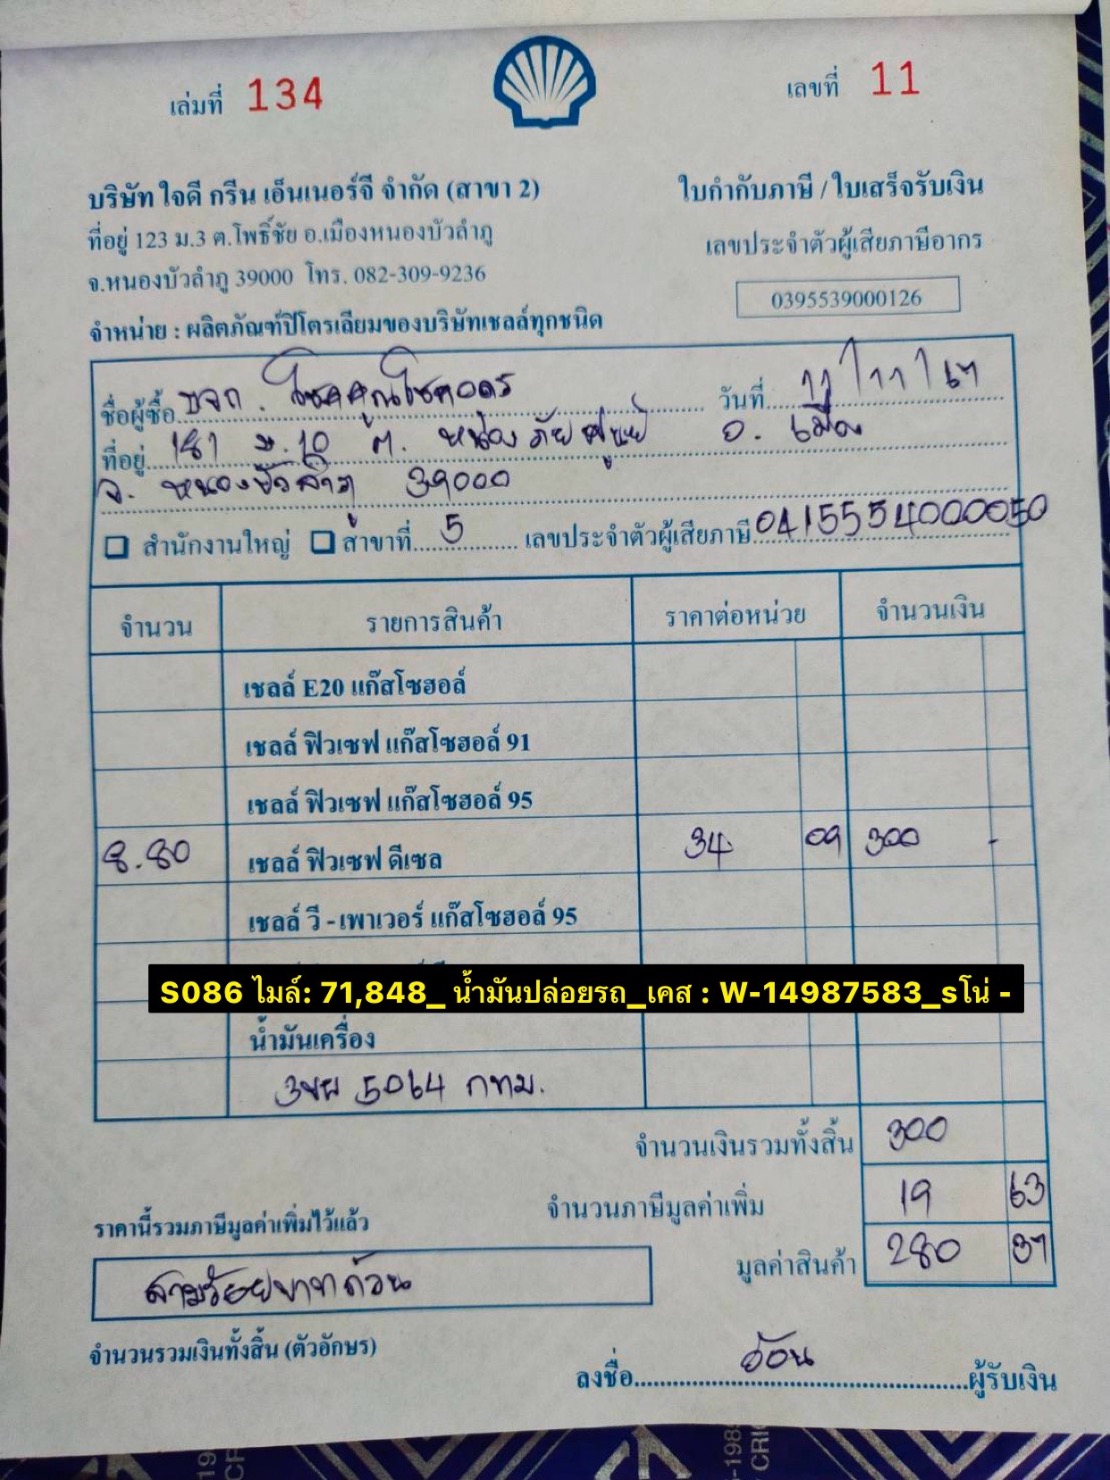 เล่มที่ 134
เลขที่ 11
บริษัท ใจดี กรีน เอ็นเนอร์จี จำกัด (สาขา 2)
ใบกำกับภาษี / ใบเสร็จรับเงิน
ที่อยู่ 123 ม.3 ต.โพธิ์ชัย อ.เมืองหนองบัวลำภู
เลขประจำตัวผู้เสียภาษีอากร
จ.หนองบัวลำภู 39000 โทร. 082-309-9236
0395539000126
จำหน่าย : ผลิตภัณฑ์ปิโตรเลียมของบริษัทเชลล์ทุกชนิด
ชื่อผู้ซื้อ หจก. โชคคูณโชคอดร วันที่ 11/11/67
ที่อยู่ 181 ม.10 ต. หนองภัยศูนย์ อ. เมือง
จ. หนองบัวลำภู 39000
สำนักงานใหญ่ สาขาที่ 5 เลขประจำตัวผู้เสียภาษี 0415554000050
จำนวน รายการสินค้า ราคาต่อหน่วย จำนวนเงิน
เชลล์ E20 แก๊สโซฮอล์
เชลล์ ฟิวเซฟ แก๊สโซฮอล์ 91
เชลล์ ฟิวเซฟ แก๊สโซฮอล์ 95
8.80 เชลล์ ฟิวเซฟ ดีเซล 34 09 300 -
เชลล์ วี - เพาเวอร์ แก๊สโซฮอล์ 95
S086 ไมล์: 71,848_ น้ำมันปล่อยรถ_เคส : W-14987583_sโน่ -
น้ำมันเครื่อง
3ฆผ 5064 กทม.
จำนวนเงินรวมทั้งสิ้น 300
จำนวนภาษีมูลค่าเพิ่ม 19 63
ราคานี้รวมภาษีมูลค่าเพิ่มไว้แล้ว
มูลค่าสินค้า 280 37
สามร้อยบาทถ้วน
จำนวนรวมเงินทั้งสิ้น (ตัวอักษร)
ลงชื่อ อ้อน ผู้รับเงิน